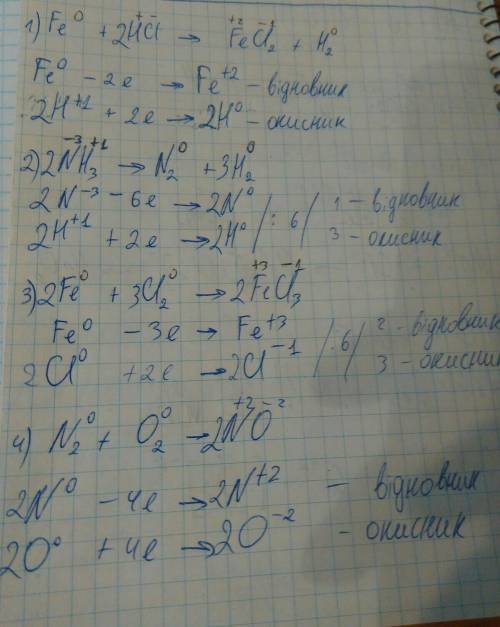 1) Fe⁰ + 2H⁺Cl⁻ → Fe⁺²Cl₂⁻¹ + H₂⁰
Fe⁰ - 2e → Fe⁺² - відновник
2H⁺¹ + 2e → 2H⁰ - окисник
2) 2N⁻³H₃⁺¹ → N₂⁰ + 3H₂⁰
2N⁻³ - 6e → 2N⁰ / : 6 / 1 - відновник
2H⁺¹ + 2e → 2H⁰ 3 - окисник
3) 2Fe⁰ + 3Cl₂⁰ → 2Fe⁺³Cl₃⁻¹
Fe⁰ - 3e → Fe⁺³ / : 6 / 2 - відновник
2Cl⁰ + 2e → 2Cl⁻¹ 3 - окисник
4) N₂⁰ + O₂⁰ → 2N⁺²O⁻²
2N⁰ - 4e → 2N⁺² - відновник
2O⁰ + 4e → 2O⁻² - окисник